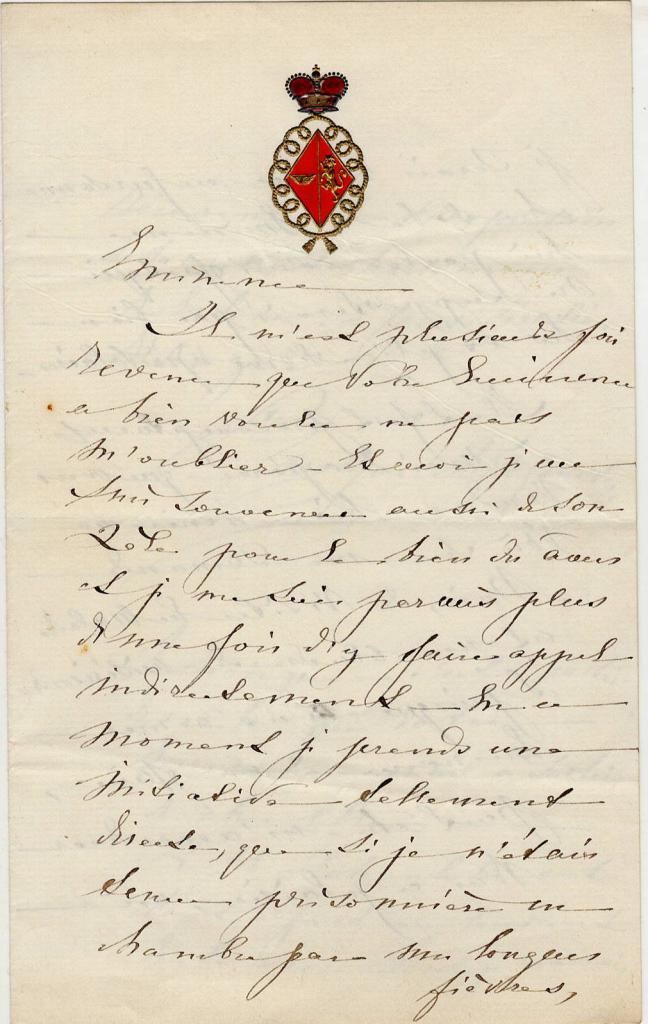 Eminence
Il m'est plusieurs fois
revenu que Votre Eminence
a bien voulu ne pas
m'oublier – Et moi je me
suis souvenue aussi de son
zèle pour le bien des âmes
et je me suis permis plus
d'une fois d'y faire appel
indirectement – En ce
moment je prends une
initiative tellement
directe, que si je n'étais
tenue prisonnière en
chambre par mes longues
fièvres,